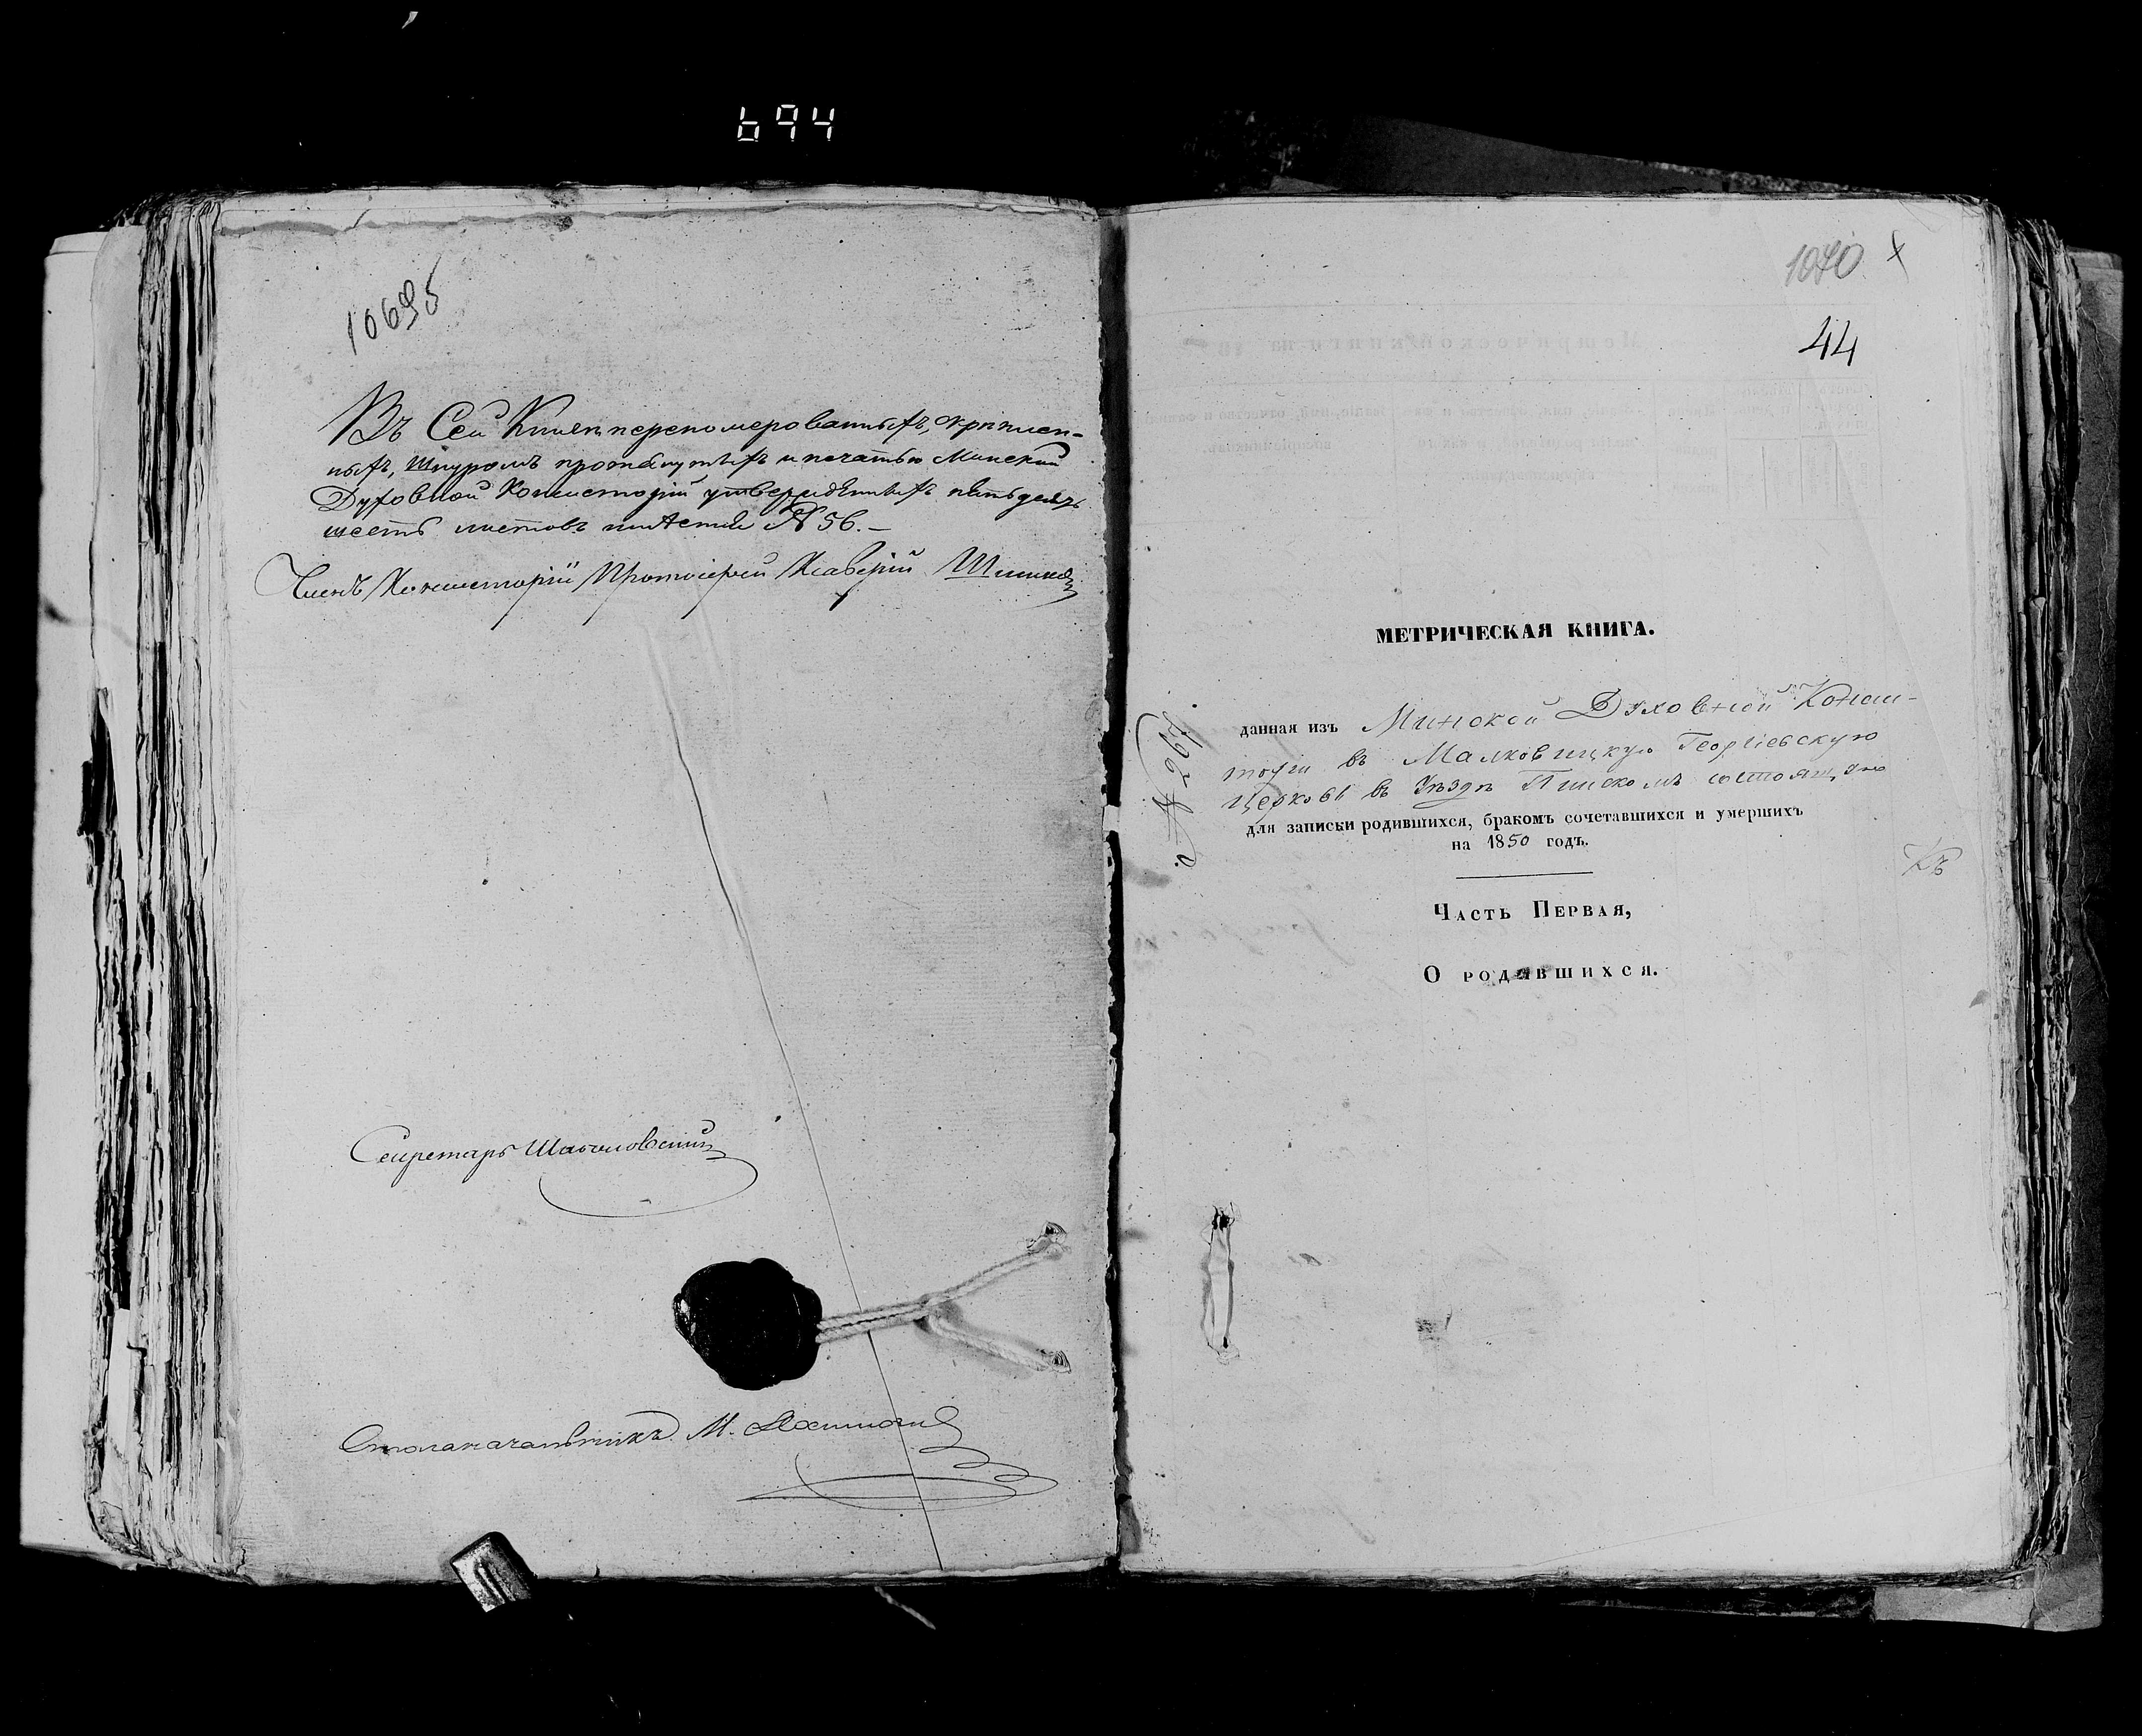 694
10695
Въ Сей Книгѣ перенумерованныхъ, скрѣплен-
ныхъ, шнуромъ протянутыхъ и печатью Минской
Духовной Консисторіи утвержденныхъ пятьдесятъ
шесть листовъ N 56.—
Членъ Консисторіи Протоіерей Ксаверій
Секретарь
Столоначальникъ М.
1070 x
44
МЕТРИЧЕСКАЯ КНИГА.
данная изъ Минской Духовной Конси-
торіи въ Малковицкую Георгіевскую
Церковь въ Уѣздѣ Пинскомъ состоящую
для записки родившихся, бракомъ сочетавшихся и умершихъ
на 1850 годъ.
Часть Первая,
О родившихся.